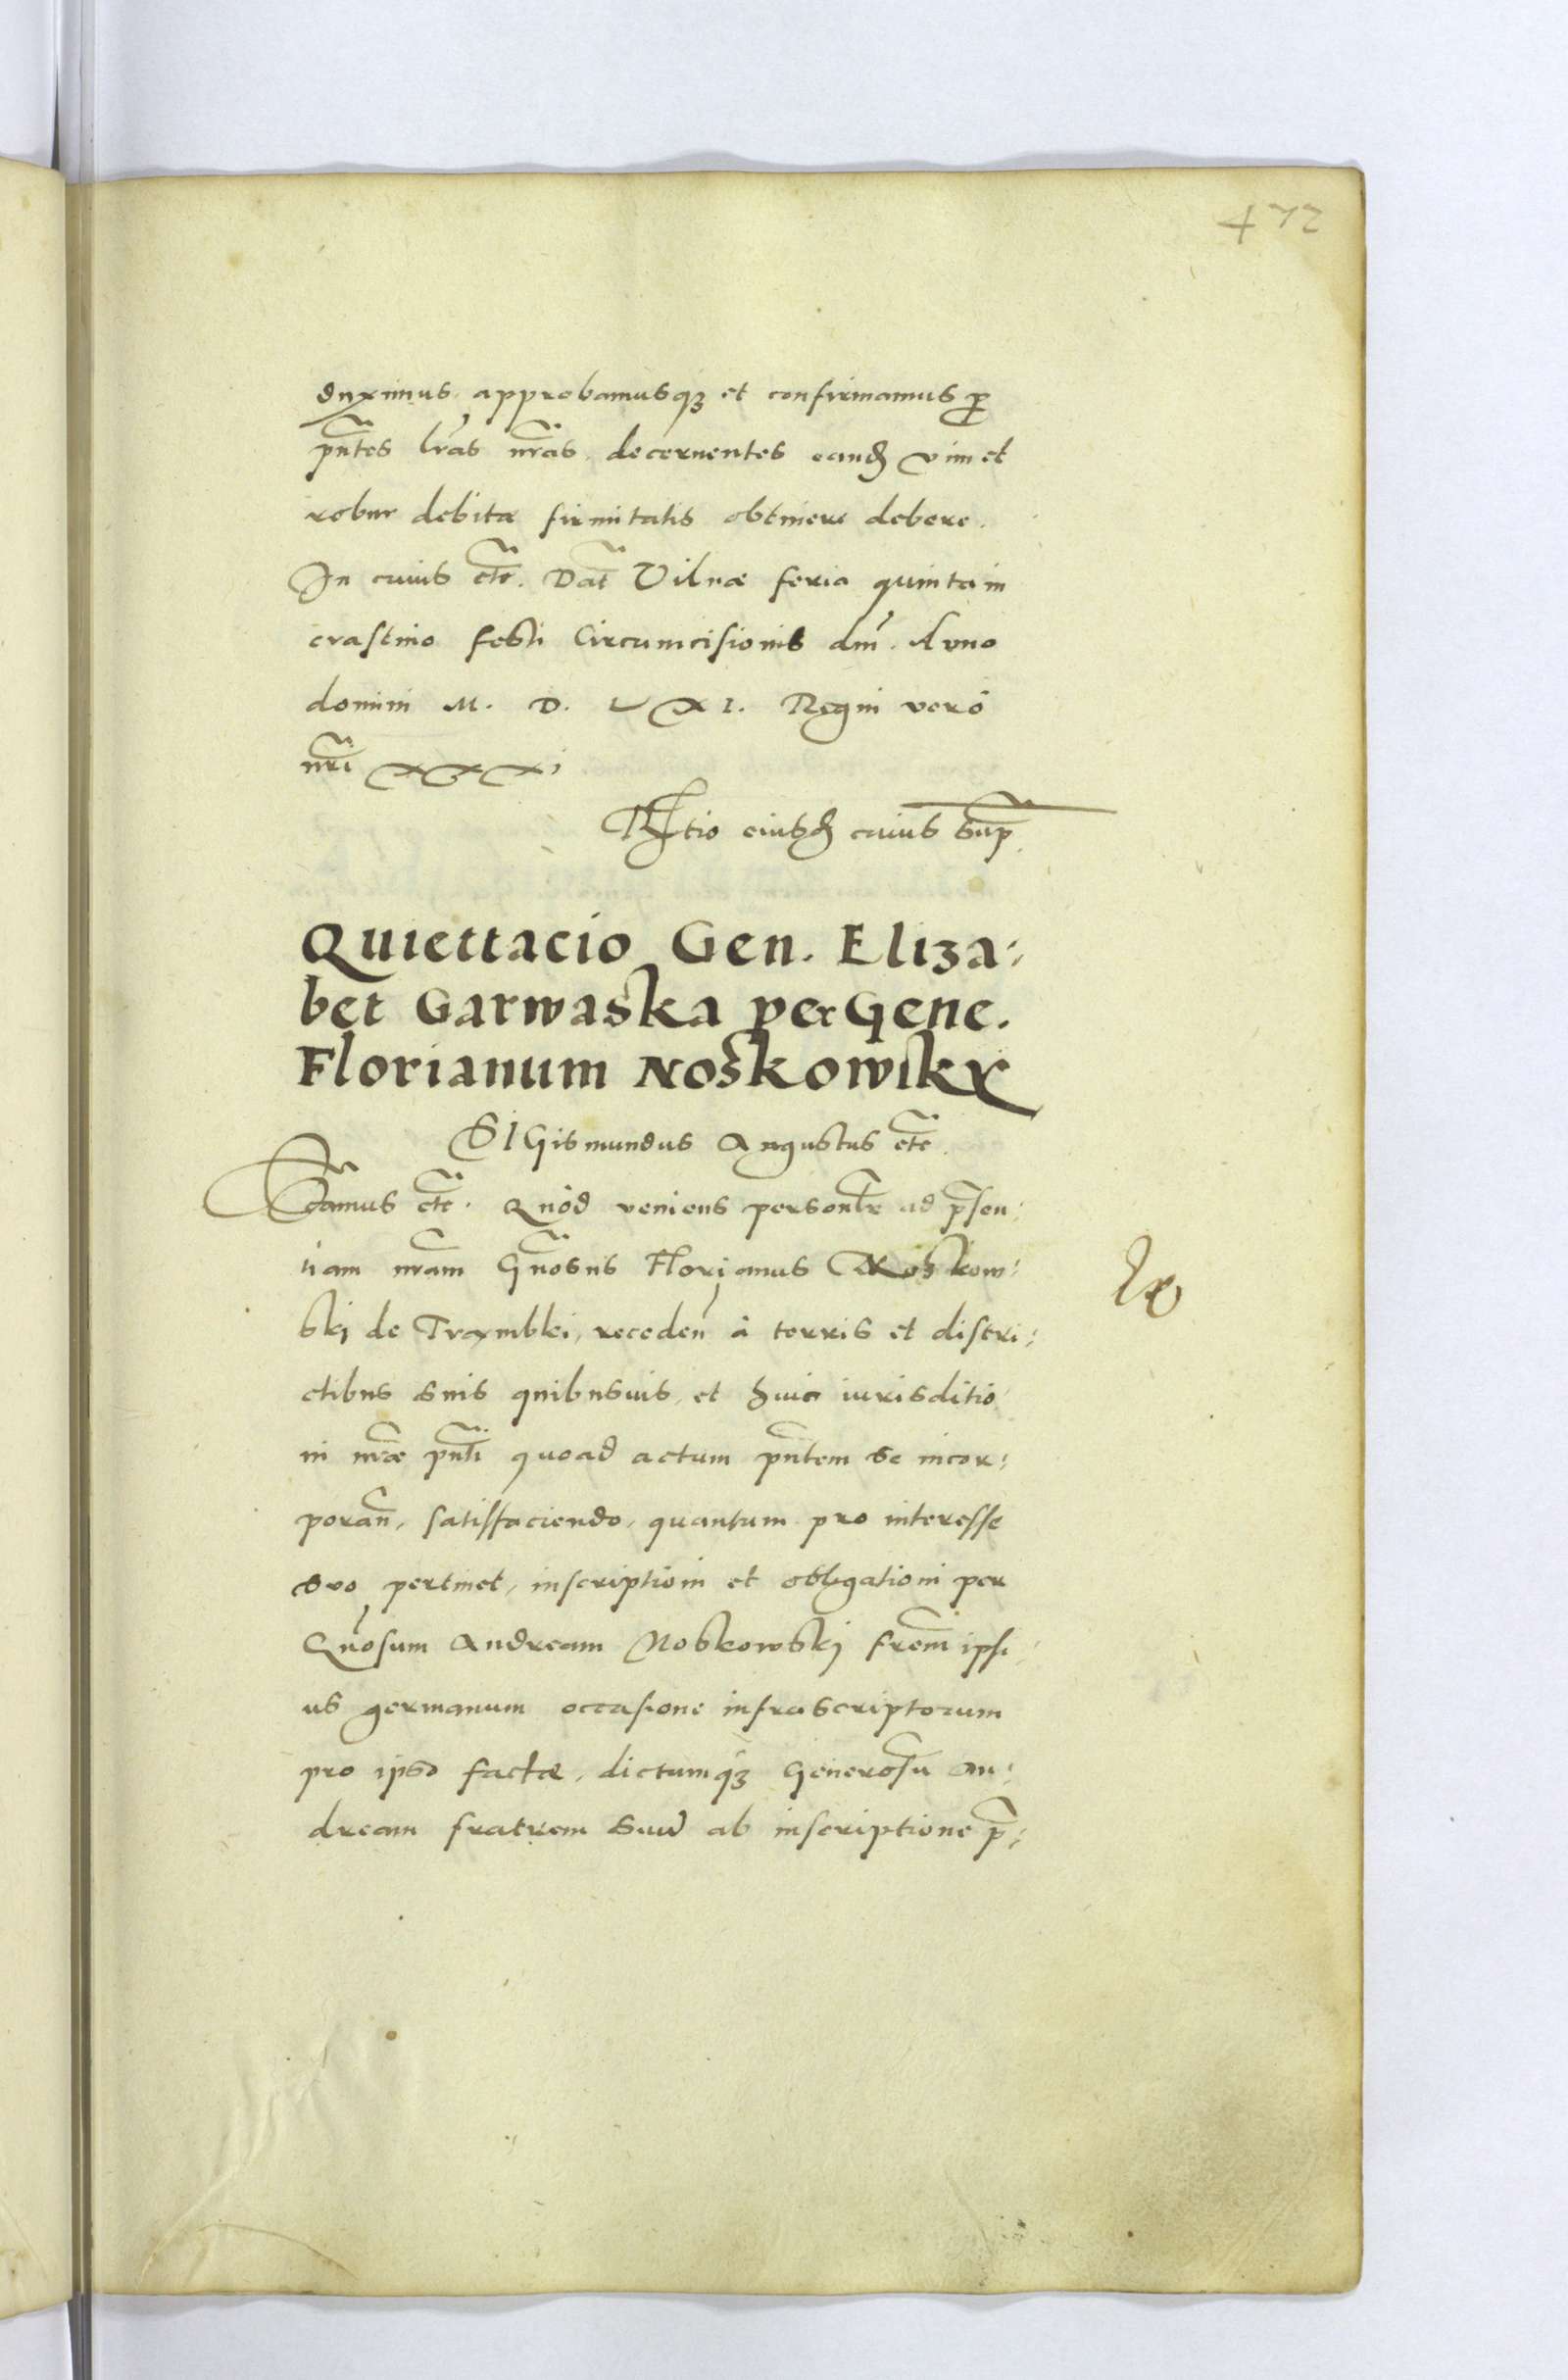 472
duximus approbamusq₃ et confirmamus ꝑ
pn̄tes lr̄as nr̄as, decernentes eand̄ vim et
robur debitæ firmitatis obtinere debere.
In cuius etc̄. Dat̄ Vilnæ feria quinta in
crastino festi Circumcisionis dni̅. Anno
domini M. D. L X I. Regni verò
nr̄i XXXI
R̄tio eiusd̄ cuius sup̄.
Quiettacio Gen. Eliza:
bet Garwaska per Gene.
Florianum Noskowsky
SIGismundus Augustus etc̄.
amus etc̄. Quòd veniens personlr̄ ad p̄sen:
tiam nr̄am Gn̄osus Florianus Noskow:
skj de Trzmblei, receden̄ à terris et distri:
ctibus suis quibusuis, et huic iurisditio
ni nr̄æ pn̄ti quoad actum pn̄tem se incor:
poran̄, satisfaciendo, quantum pro interesse
suo pertinet, inscriptioni et obligationi per
Gn̄osum Andream Noskowskj frem̄ ipsi
us germanum occasione infrascriptorum
pro ipso factæ, dictumq₃ Generosū An:
dream fratrem suū ab inscriptione p̄: